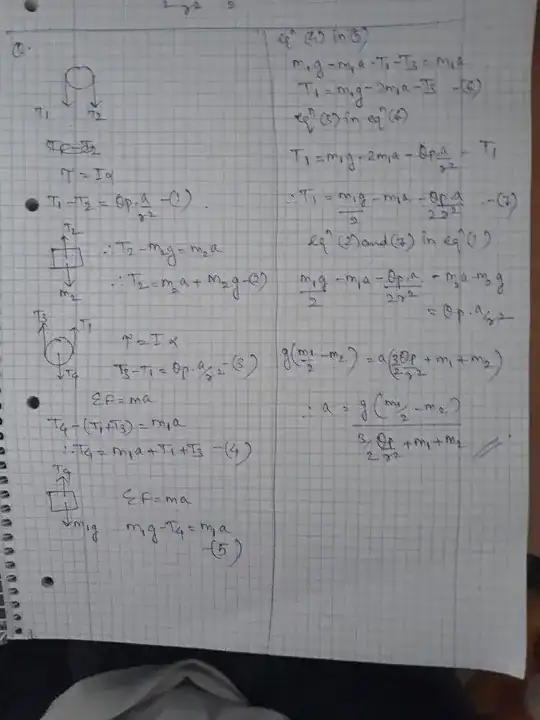 Q.
T₁ T₂
τ = Iα
T₁ - T₂ = Θp.a/r² - (1)
T₂
∴ T₂ - m₂g = m₂a
∴ T₂ = m₂a + m₂g - (2)
m₂
T₃ T₁
T₄
τ = Iα
T₃ - T₁ = Θp.a/r² - (3)
ΣF = ma
T₄ - (T₁ + T₃) = m₁a
∴ T₄ = m₁a + T₁ + T₃ - (4)
T₄
ΣF = ma
m₁g
m₁g - T₄ = m₁a
- (5)
eqⁿ (4) in (5)
m₁g - m₁a - T₁ - T₃ = m₁a
T₁ = m₁g - 2m₁a - T₃ - (6)
eqⁿ (3) in eqⁿ (6)
T₁ = m₁g - 2m₁a - Θp.a/r² - T₁
∴ T₁ = m₁g/2 - m₁a - Θp.a/2r² - (7)
eqⁿ (2) and (7) in eqⁿ (1)
m₁g/2 - m₁a - Θp.a/2r² - m₂a - m₂g
= Θp.a/r²
g(m₁/2 - m₂) = a(3Θp/2r² + m₁ + m₂)
∴ a = g(m₁/2 - m₂) / 3/2 Θp/r² + m₁ + m₂